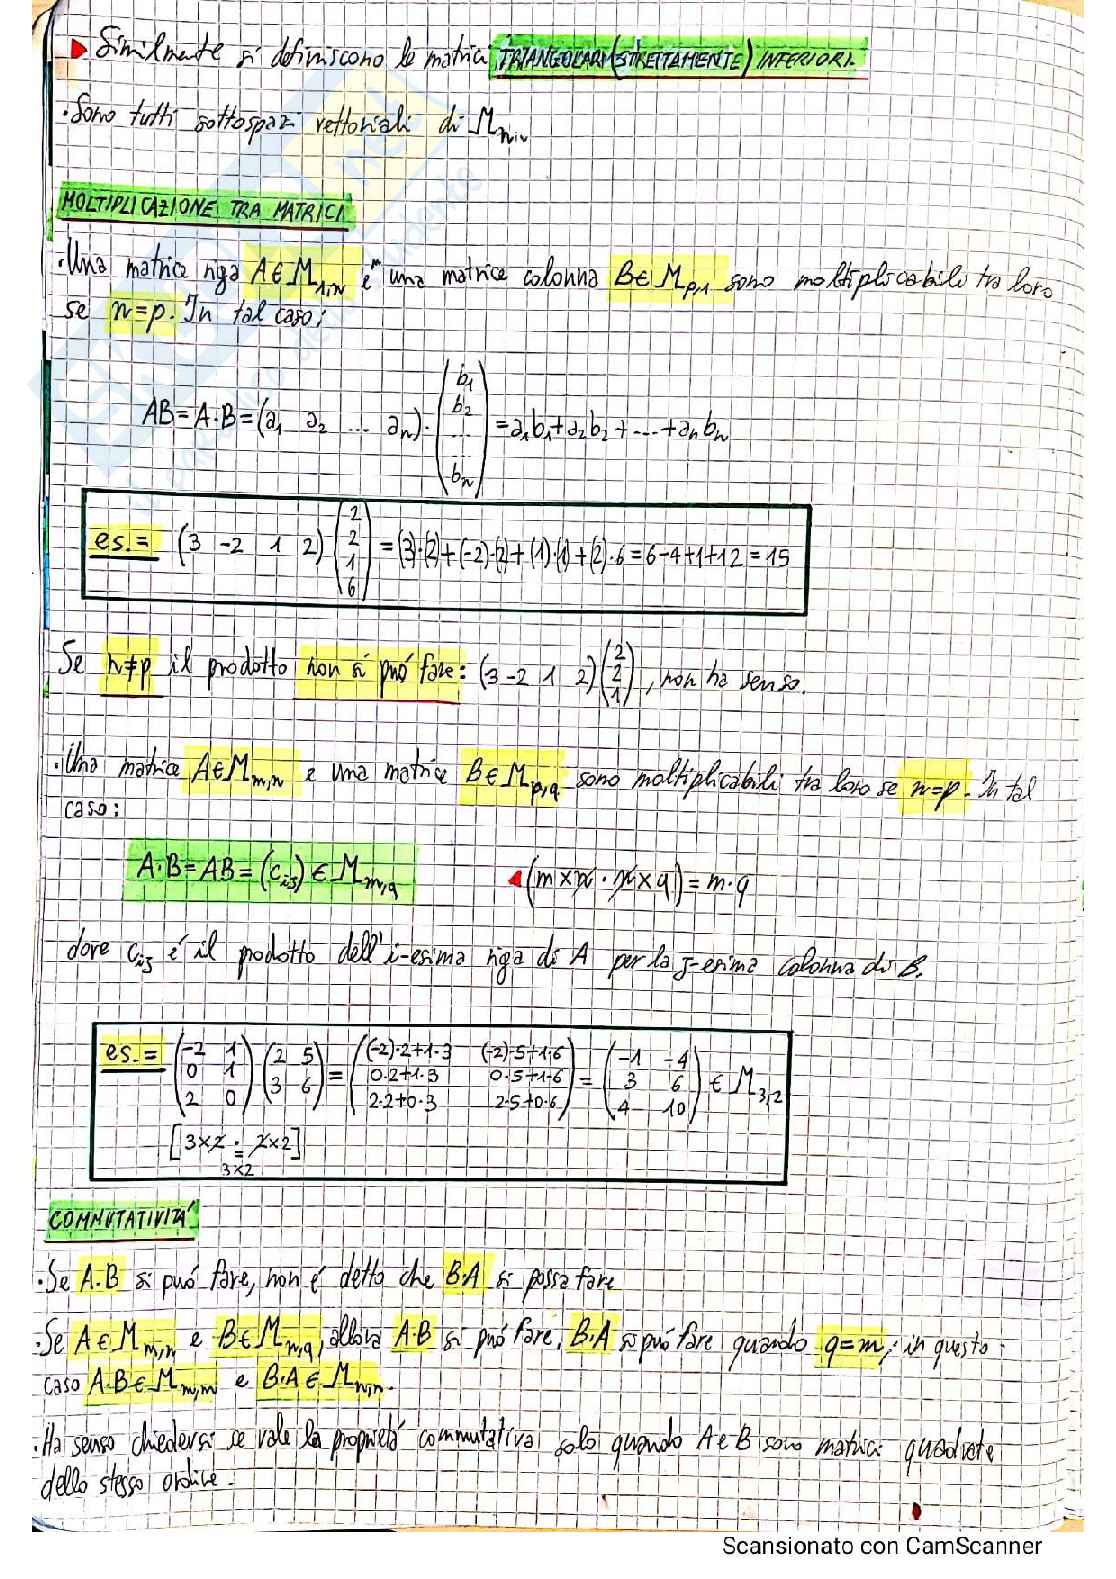 Similmente si definiscono le matrici TRIANGOLARI (STRETTAMENTE) INFERIORI.
· Sono tutti sottospazi vettoriali di M
MOLTIPLICAZIONE TRA MATRICI
· Una matrice riga A∈M₁,ₙ e una matrice colonna B∈M_p,1 sono moltiplicabili tra loro
se n=p. In tal caso:
AB=A·B=(a₁ a₂ ... aₙ)·(b₁ b₂ ... ... bₙ)=a₁b₁+a₂b₂+...+aₙbₙ
es.= (3 -2 1 2)(2 2 1 6)=(3)·(2)+(-2)·(2)+(1)·(1)+(2)·6=6-4+1+12=15
Se n≠p il prodotto non si puó fare: (3 -2 1 2)(2 2 1), non ha senso.
· Una matrice A∈M_m,n e una matrice B∈M_p,q sono moltiplicabili tra loro se n=p. In tal
caso:
A·B=AB=(c_ij)∈M_m,q (m×n·n×q)=m·q
dove c_ij é il prodotto dell'i-esima riga di A per la j-esima colonna di B.
es.= (-2 1 0 1 2 0)·(2 5 3 6)=((-2)·2+1·3 (-2)·5+1·6 0·2+1·3 0·5+1·6 2·2+0·3 2·5+0·6)=(-1 -4 3 6 4 10)∈M₃,₂
[3×2·2×2]
=
3×2
COMMUTATIVITÁ
· Se A·B si puó fare, non é detto che B·A si possa fare
· Se A∈M_m,n e B∈M_n,q, allora A·B si puó fare, B·A si puó fare quando q=m; in questo
caso A·B∈M_m,m e B·A∈M_n,n.
· Ha senso chiedersi se vale la proprietá commutativa solo quando A e B sono matrici quadrate
dello stesso ordine.
Scansionato con CamScanner